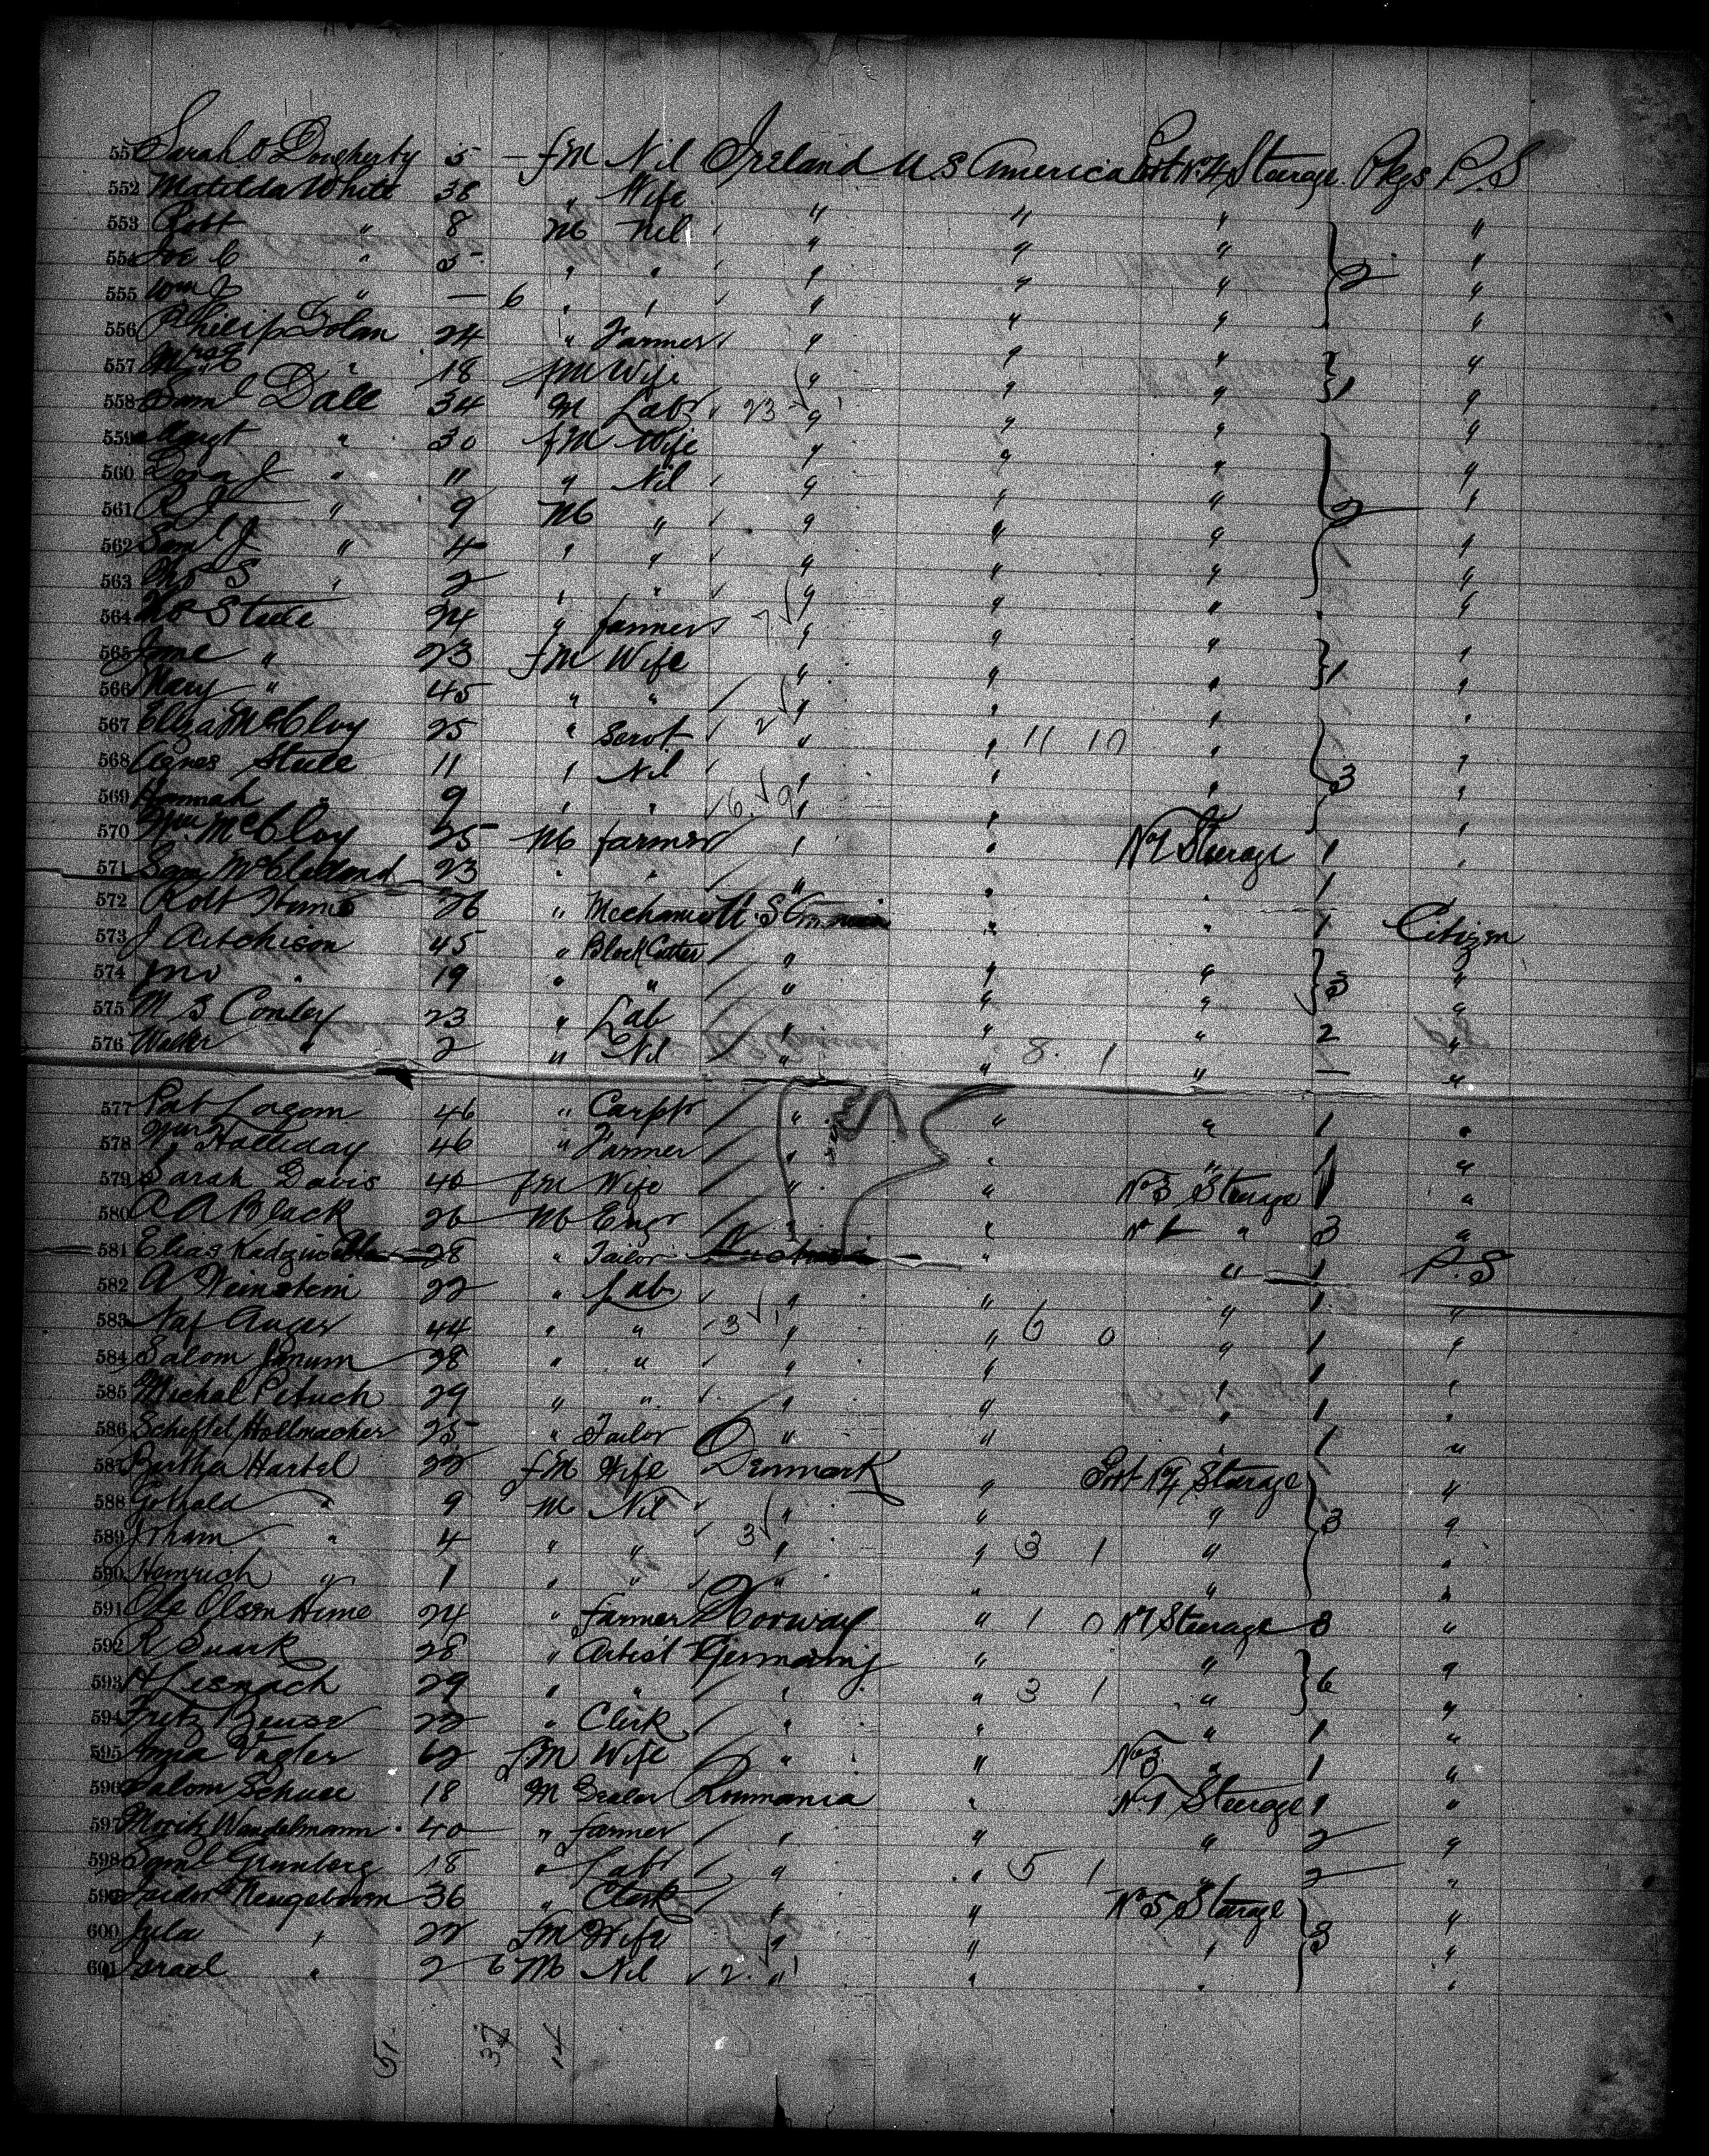 551 Sarah O Dougherty 5 — fM Nil Ireland U.S America Port No 4 Steerage Pkgs P.S
552 Matilda White 38 " Wife " " " "
553 Robt " 8 M Nil " " " "
554 " 5 " " " " " 2 "
555 Wm J " — 6 " " " " " "
556 Philip Dolan 24 " Farmer " " " "
557 Mrs E " 18 fM Wife " " " 1 "
558 Saml Dale 34 M Labr 23 " " " "
559 Margt " 30 fM Wife " " " "
560 " 11 " Nil " " " "
561 R J " 9 M " " " " 2 "
562 Saml J " 4 " " " " " "
563 S " 2 " " " " " "
564 Steele 24 " farmer 7 " " " "
565 Jane " 23 fM Wife " " " 1 "
566 Mary " 45 " " " " " "
567 Eliza McCloy 25 " Servt 2 " " 11 10 " "
568 Agnes Steele 11 " Nil " " " 3 "
569 Hannah " 9 " " 6 9 " " " "
570 Wm McCloy 25 M farmer " " No 1 Steerage 1 "
571 Sam McClelland 23 " " " " " 1
572 Robt 26 " Mechanic U.S America " " 1 Citizen
573 J Aitchison 45 " Block Cutter " " " "
574 Jno " 19 " " " " " 3 "
575 M S Conley 23 " Lab " " " 2 "
576 Walter " 2 " Nil " " 8 1 " — "
577 Pat Logan 46 " Carptr " " " 1 "
578 Wm Halliday 46 " Farmer " " " 1 "
579 Sarah Davis 40 fM Wife " " No 3 Steerage 1 "
580 A A Black 26 M Engr " " No 1 " 3 "
581 Elias 28 " Tailor " " 1 P.S
582 A Weinstein 22 " Lab " " " 1 "
583 Naf Auger 44 " " 3 " " 6 0 " 1 "
584 Salom 28 " " " " " 1 "
585 Michal Petuch 29 " " " " " 1 "
586 Scheftel Hollmacher 25 " Tailor " " " 1 "
587 Bertha Hartel 22 fM Wife Denmark " Port No 4 Steerage "
588 " 9 M Nil " " " 3 "
589 " 4 " " 3 " " 3 1 " "
590 Heinrich " 1 " " " " " "
591 Ole Olsen 24 " Farmer Norway " 1 0 No 1 Steerage 3 "
592 R 28 " Artist Germany " " "
593 H 29 " " " " 3 1 " 6 "
594 Fritz 22 " Clerk " " " 1 "
595 Vogler 62 fM Wife " " No 3 " 1 "
596 Salom 18 M Roumania " No 1 Steerage 1 "
597 Moritz Wandelmann 40 " farmer " " " 2 "
598 Saml Grunberg 18 " Labr " " 5 1 " 2 "
599 36 " Clerk " " No 5 Steerage "
600 " 22 fM Wife " " " 3 "
601 Israel " 2 6 M Nil 2 " " " "
51 37 14